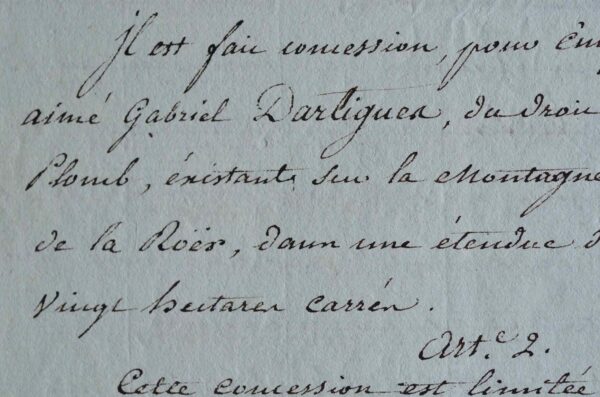 Il est fait concession, pour Cinq
aimé Gabriel Dartigues, du droit
Plomb, éxistants sur la Montagne
de la Roër, dans une étendue d
vingt hectares carrés.
Art.e 2.
Cette concession est limitée